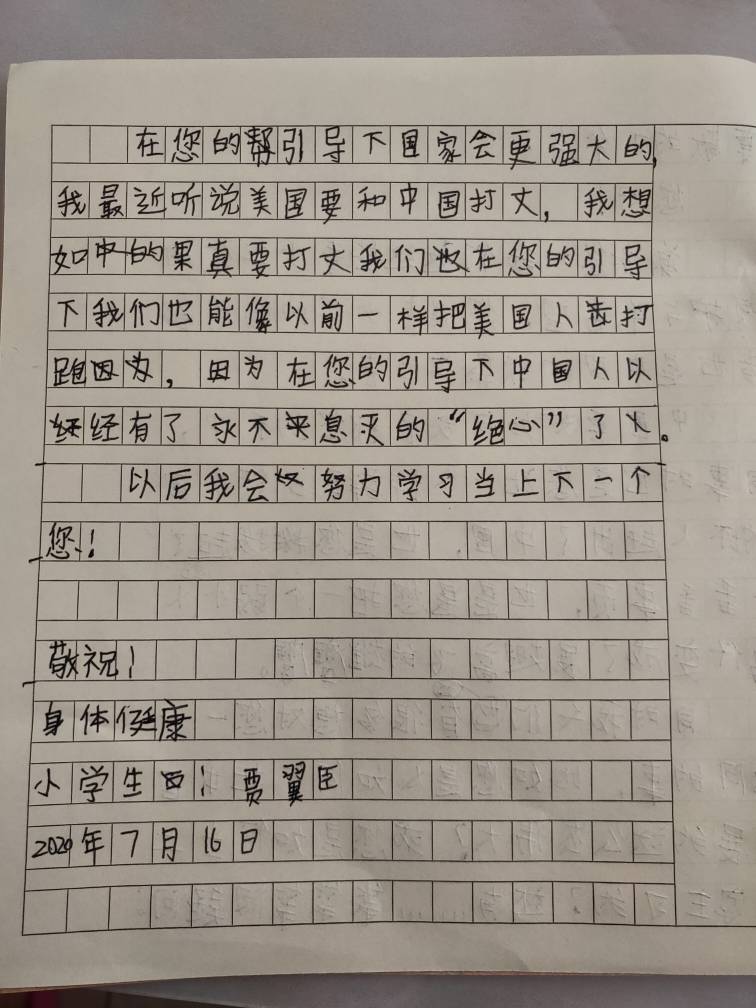 在您的帮引导下国家会更强大的,
我最近听说美国要和中国打丈，我想
如中的果真要打丈我们也在您的引导
下我们也能像以前一样把美国人击打
跑因为，因为在您的引导下中国人以
经经有了永不来息灭的“绝心”了。
以后我会努努力学习当上下一个
您！
敬祝！
身体健康
小学生 贾翼臣
2020年7月16日